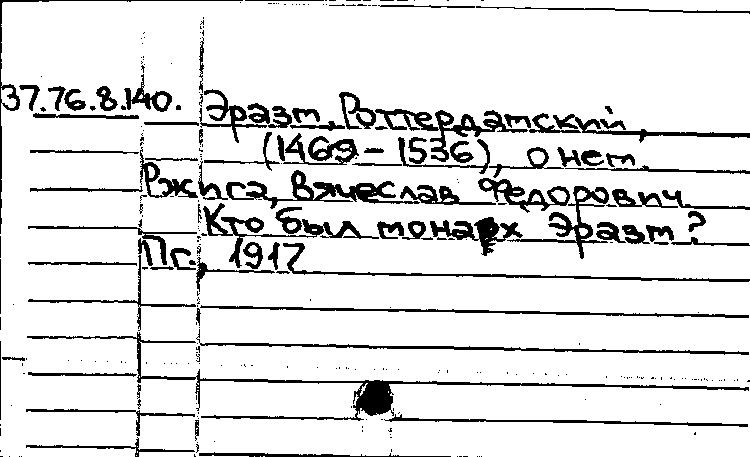 37.76.8.140. Эразм, Роттердамский,
(1469-1536), о нем.
Ржига, Вячеслав Федорович.
Кто был монах Эразм?
Пг., 1917